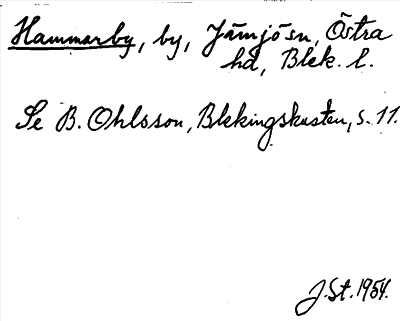 Hammarby, by, Jämjö sn, Östra
hd, Blek. l.
Se B. Ohlsson, Blekingskusten, s. 11.
J. St. 1954.